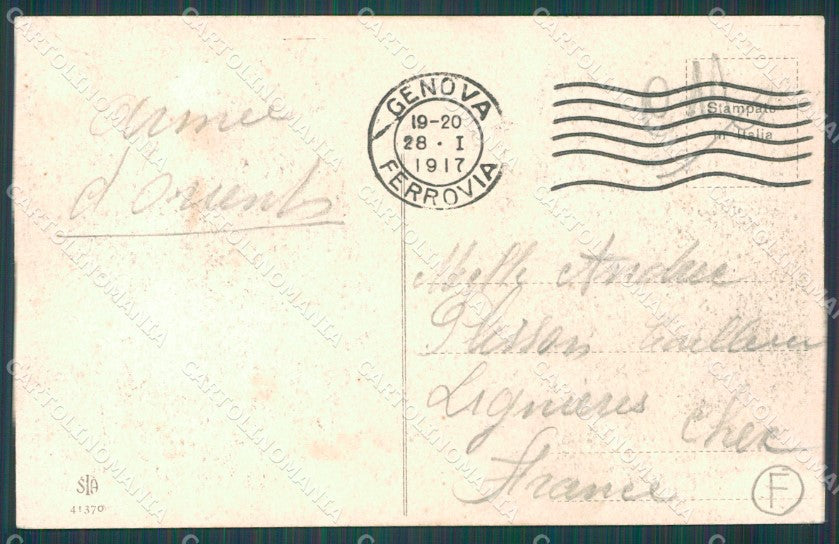 armée
d'orient
GENOVA
19-20
28 · I
1917
FERROVIA
Stampato
in Italia
Melle Andrée
Plisson
Lignières Cher
France
SIA
41370
F
CARTOLINOMANIA